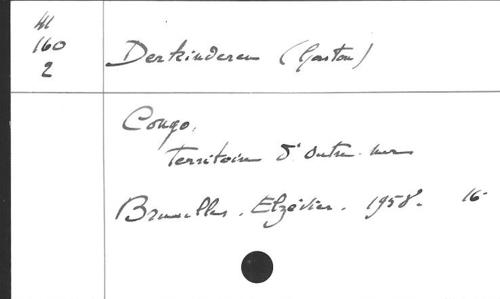 HI
160
2
Derkinderen (Gaston)
Congo,
Territoire d'Outre-mer
Bruxelles. Elzévier. 1958. 16-